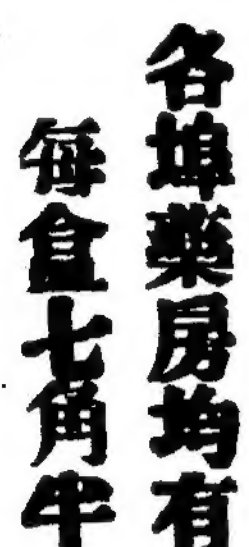 各埠藥房均有
每盒七角半